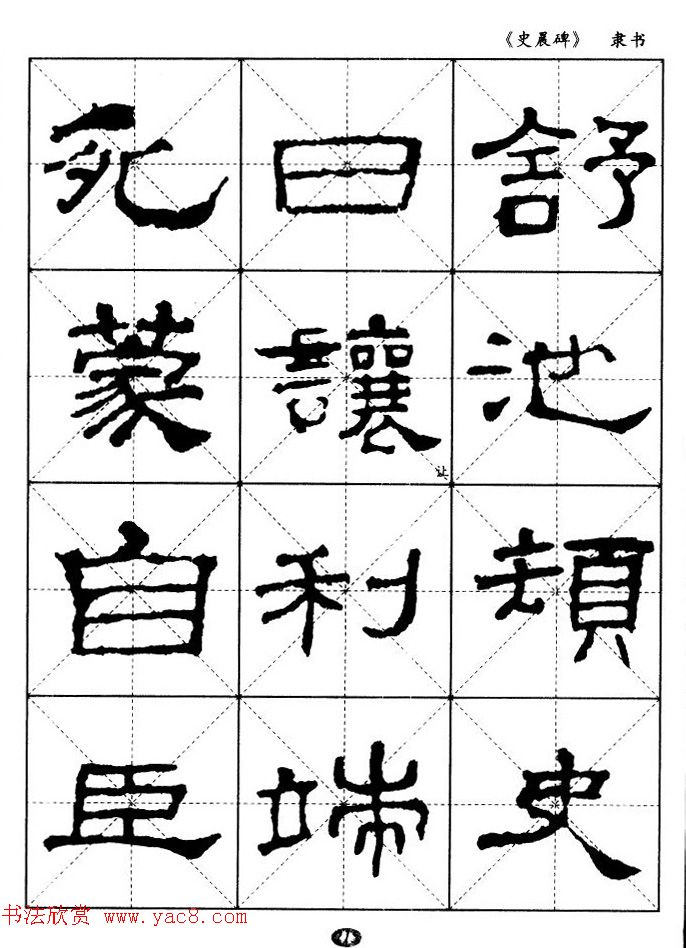 《史晨碑》 隶书
舒池頓史
曰讓利端
让
死蒙自臣
书法欣赏 www.yac8.com